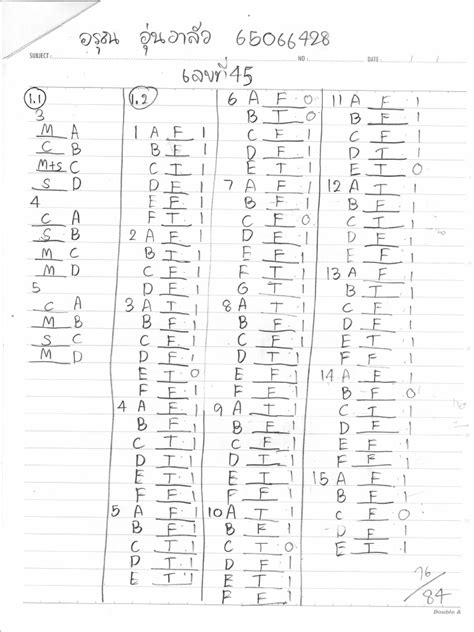 65066428
SUBJECT : NO : DATE : / /
เลขที่ 45
1.1
3
M A
C B
M+s C
S D
4
C A
S B
M C
M D
5
C A
M B
S C
M D
1.2
1 A F 1
B F 1
C T 1
D F 1
E F 1
F T 1
2 A F 1
B T 1
C F 1
D F 1
3 A T 1
B F 1
C F 1
D F 1
E T 0
F F 1
4 A F 1
B F 1
C T 1
D T 1
E T 1
F F 1
5 A F 1
B F 1
C T 1
D T 1
E T 1
6 A F 0
B T 0
C F 1
D T 1
E T 1
7 A F 1
B F 1
C F 0
D F 1
E F 1
F T 1
G T 1
8 A T 1
B F 1
C F 1
D T 1
E F 1
F T 1
9 A T 1
B F 1
C F 1
D F 1
E T 1
10 A T 1
B F 1
C T 0
D T 1
E F 1
F F 1
11 A F 1
B F 1
C F 1
D T 1
E T 0
12 A T 1
B F 1
C T 1
D F 1
E F 1
13 A F 1
B T 1
C F 1
D F 1
E T 1
F F 1
14 A F 1
B F 0
C T 1
D F 1
E F 1
F F 1
15 A F 1
B F 1
C F 0
D F 1
E T 1
76/84
Double A